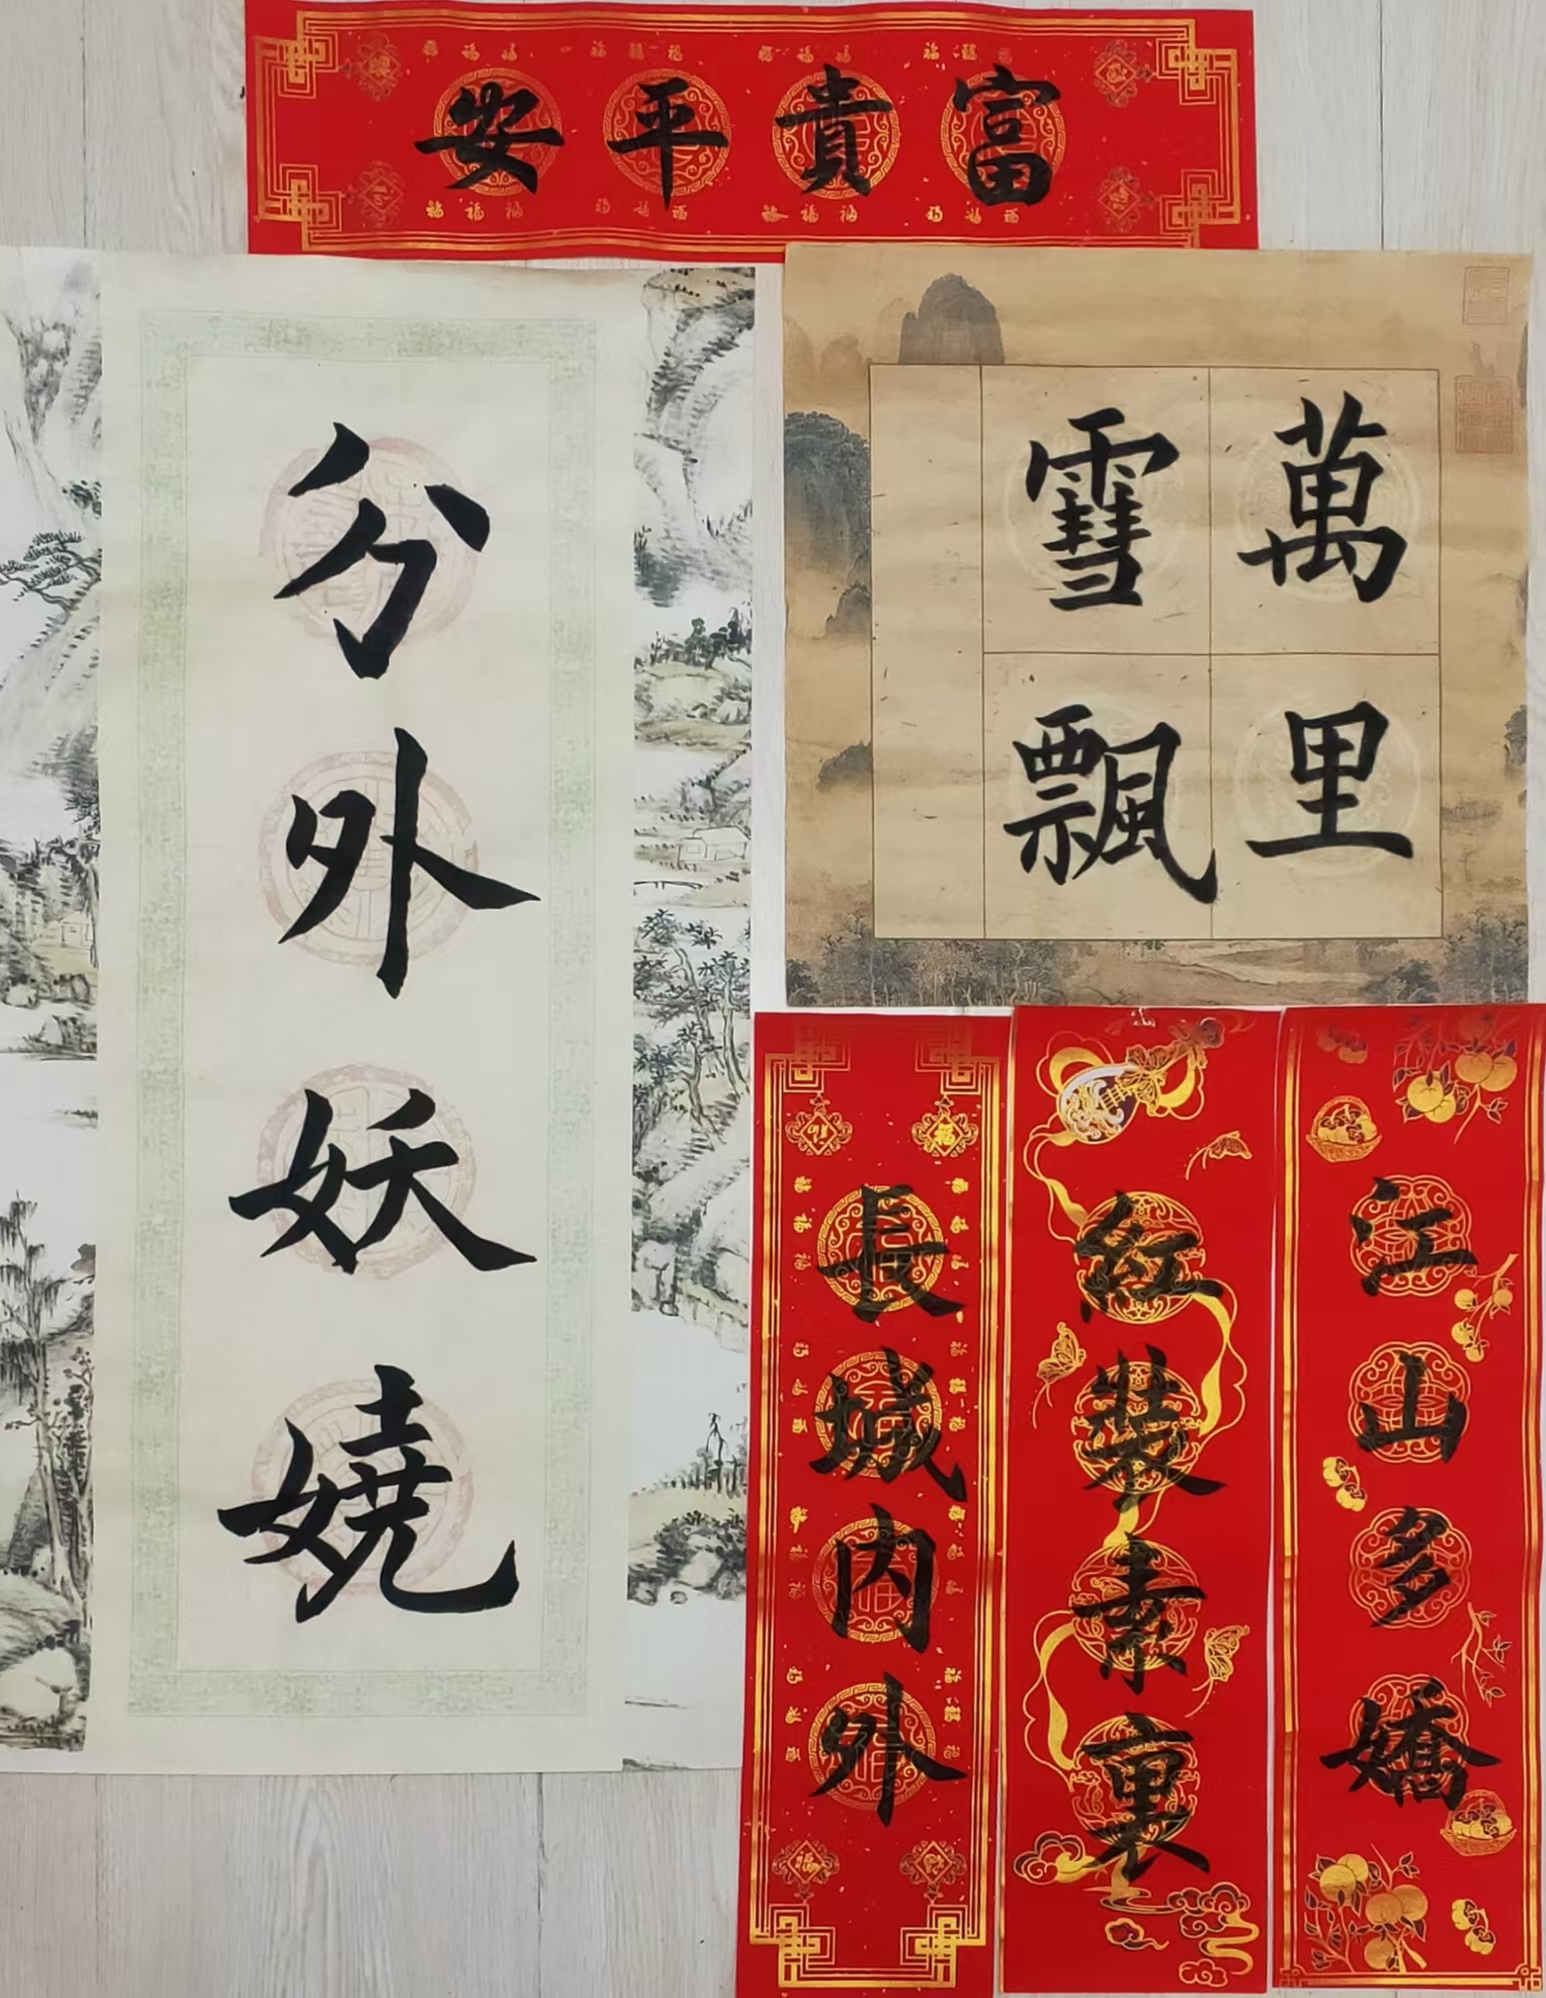 富貴平安
萬里
雪飄
江山多嬌
紅裝素裏
長城内外
分外妖嬈